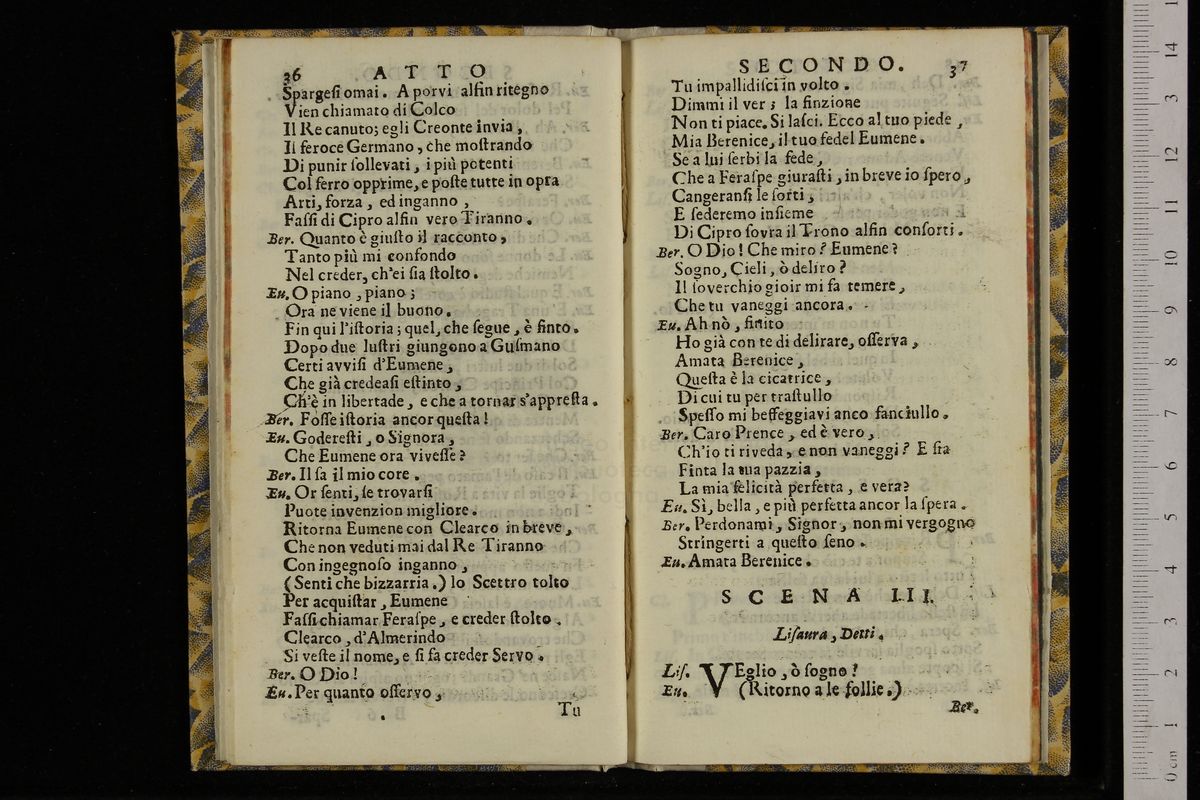 36 ATTO
Spargesi omai. A porvi alfin ritegno
Vien chiamato di Colco
Il Re canuto; egli Creonte invia,
Il feroce Germano, che moſtrando
Di punir ſollevati, i più potenti
Col ferro opprime, e poſte tutte in opra
Arti, forza, ed inganno,
Faſſi di Cipro alfin vero Tiranno.
Ber. Quanto è giuſto il racconto,
Tanto più mi confondo
Nel creder, ch'ei ſia ſtolto.
Eu. O piano, piano;
Ora ne viene il buono.
Fin qui l'iſtoria; quel, che ſegue, è finto.
Dopo due luſtri giungono a Guſmano
Certi avviſi d'Eumene,
Che già credeaſi eſtinto,
Ch'è in libertade, e che a tornar s'appreſta.
Ber. Foſſe iſtoria ancor queſta!
Eu. Godereſti, o Signora,
Che Eumene ora viveſſe?
Ber. Il ſa il mio core.
Eu. Or ſenti, ſe trovarſi
Puote invenzion migliore.
Ritorna Eumene con Clearco in breve,
Che non veduti mai dal Re Tiranno
Con ingegnoſo inganno,
(Senti che bizzarria.) lo Scettro tolto
Per acquiſtar, Eumene
Faſſi chiamar Feraſpe, e creder ſtolto.
Clearco, d'Almerindo
Si veſte il nome, e ſi fa creder Servo.
Ber. O Dio!
Eu. Per quanto oſſervo,
Tu
SECONDO. 37
Tu impallidiſci in volto.
Dimmi il ver; la finzione
Non ti piace. Si laſci. Ecco al tuo piede,
Mia Berenice, il tuo fedel Eumene.
Se a lui ſerbi la fede,
Che a Feraſpe giuraſti, in breve io ſpero,
Cangeranſi le ſorti,
E ſederemo inſieme
Di Cipro ſovra il Trono alfin conſorti.
Ber. O Dio! Che miro? Eumene?
Sogno, Cieli, ò deliro?
Il ſoverchio gioir mi fa temere,
Che tu vaneggi ancora.
Eu. Ah nò, finito
Ho già con te di delirare, oſſerva,
Amata Berenice,
Queſta è la cicatrice,
Di cui tu per traſtullo
Speſſo mi beffeggiavi anco fanciullo.
Ber. Caro Prence, ed è vero,
Ch'io ti riveda, e non vaneggi? E ſia
Finta la tua pazzia,
La mia felicità perfetta, e vera?
Eu. Sì, bella, e più perfetta ancor la ſpera.
Ber. Perdonami, Signor, non mi vergogno
Stringerti a queſto ſeno.
Eu. Amata Berenice.
SCENA III.
Liſaura, Detti.
Liſ. VEglio, ò ſogno?
Eu. (Ritorno a le follie.)
Ber.
0 cm 1 2 3 4 5 6 7 8 9 10 11 12 3 14